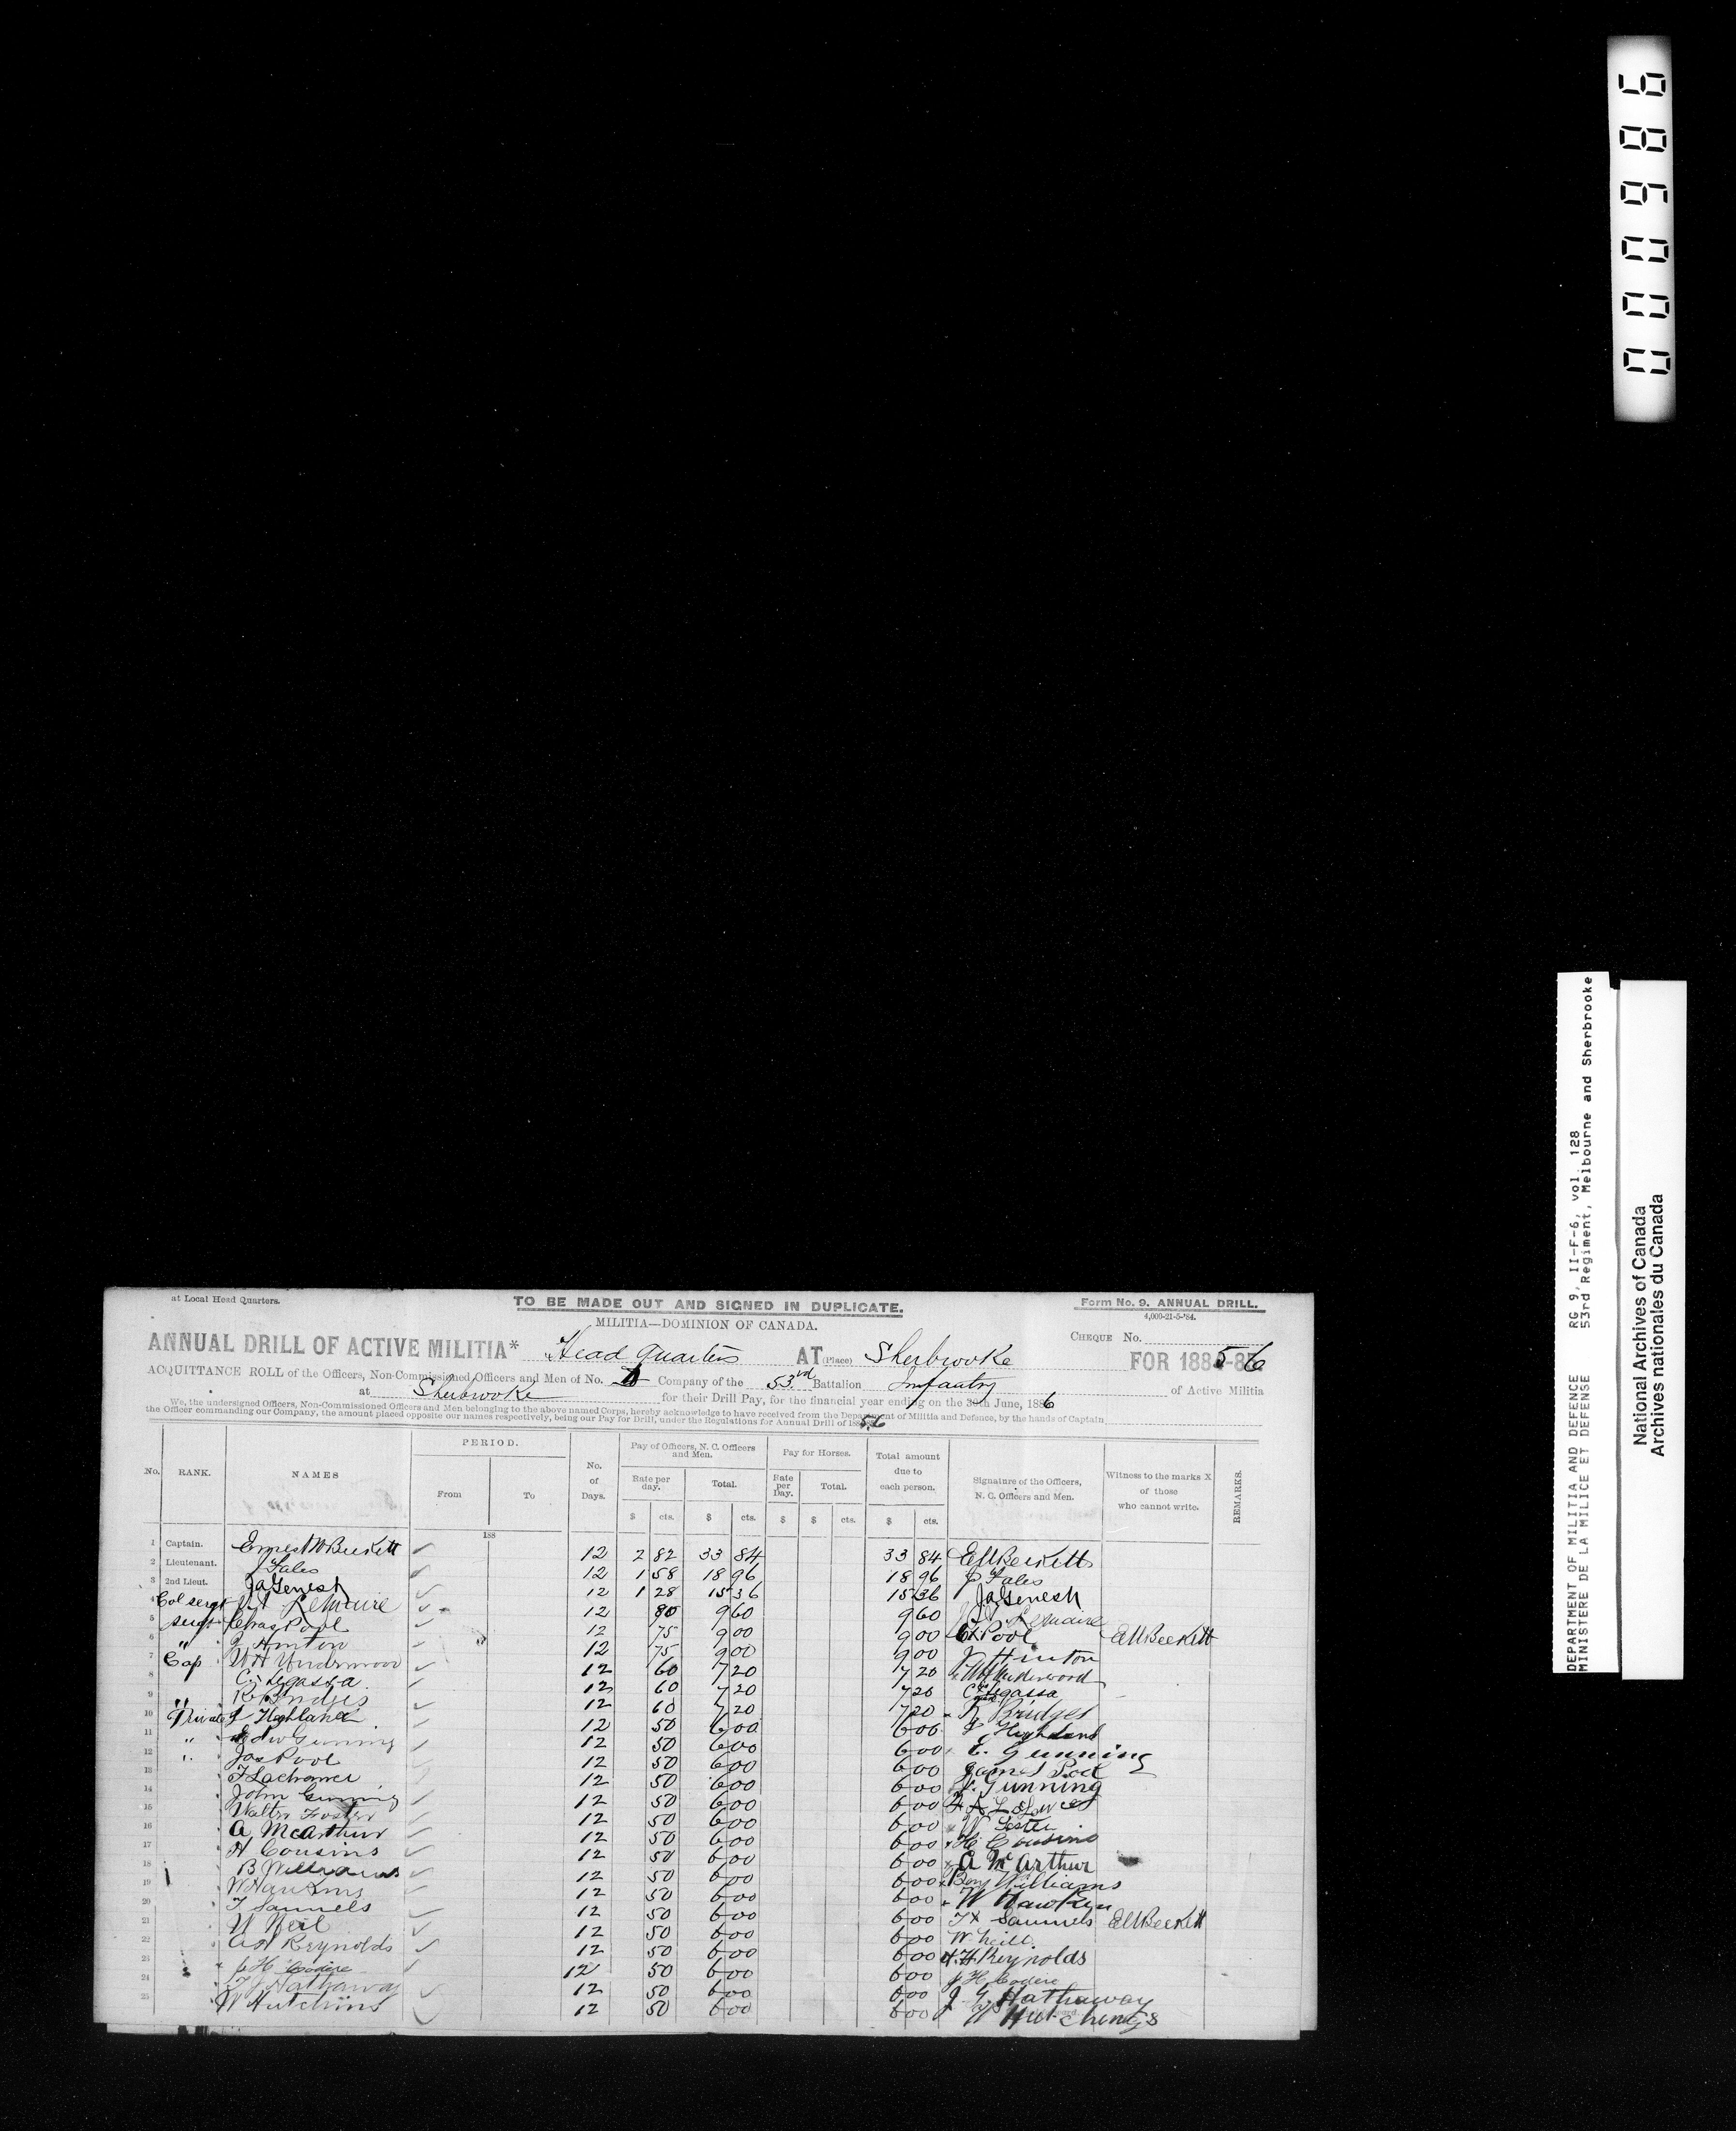 000986
DEPARTMENT OF MILITIA AND DEFENCE RG 9, II-F-6, vol. 128
MINISTERE DE LA MILICE ET DEFENSE 53rd Regiment, Melbourne and Sherbrooke
National Archives of Canada
Archives nationales du Canada
at Local Head Quarters. TO BE MADE OUT AND SIGNED IN DUPLICATE. Form No. 9. ANNUAL DRILL.
4,000-21-5-'84.
MILITIA—DOMINION OF CANADA.
CHEQUE No.
ANNUAL DRILL OF ACTIVE MILITIA* Head Quarters AT (Place) Sherbrooke FOR 1885-86
ACQUITTANCE ROLL of the Officers, Non-Commissioned Officers and Men of No. Company of the 53rd Battalion Infantry of Active Militia
at Sherbrooke for their Drill Pay, for the financial year ending on the 30th June, 1886
We, the undersigned Officers, Non-Commissioned Officers and Men belonging to the above named Corps, hereby acknowledge to have received from the Department of Militia and Defence, by the hands of Captain
the Officer commanding our Company, the amount placed opposite our names respectively, being our Pay for Drill, under the Regulations for Annual Drill of 188
No. RANK. NAMES PERIOD. From To No. of Days. Pay of Officers, N. C. Officers and Men. Rate per day. Total. Pay for Horses. Rate per Day. Total. Total amount due to each person. Signature of the Officers, N. C. Officers and Men. Witness to the marks X of those who cannot write. REMARKS.
$ cts. $ cts. $ $ cts. $ cts.
188
1 Captain. Ernest W Beckett 12 2 82 33 84 33 84
2 Lieutenant. J Fales 12 1 58 18 96 18 96 J Fales
3 2nd Lieut. Ja Genest 12 1 28 15 36 15 36 Ja Genest
4 Col sergt Lemaire 12 80 9 60 9 60 Lemaire
5 Sergt Chas Pool 12 75 9 00 9 00 C X Pool
6 " J Hinton 12 75 9 00 9 00 J Hinton
7 Cop W H Underwood 12 60 7 20 7 20 W H Underwood
8 C Legassa 12 60 7 20 7 20 C Legassa
9 " R Bridges 12 60 7 20 7 20 R Bridges
10 Private J Highland 12 50 6 00 6 00 J Highland
11 " Edw Gunning 12 50 6 00 6 00 E. Gunning
12 " Jas Pool 12 50 6 00 6 00 James Pool
13 12 50 6 00 6 00 J. Gunning
14 John Gunning 12 50 6 00 6 00
15 Walter Foster 12 50 6 00 6 00 W
16 A McArthur 12 50 6 00 6 00 H Cousins
17 H Cousins 12 50 6 00 6 00 A McArthur
18 B Williams 12 50 6 00 6 00 Benj Williams
19 W Hawkins 12 50 6 00 6 00 W Hawkins
20 T Samuels 12 50 6 00 6 00 T X Samuels
21 W Neil 12 50 6 00 6 00 W Neill
22 A H Reynolds 12 50 6 00 6 00 A. H Reynolds
23 J H Codere 12 50 6 00 6 00 J H Codere
24 Hathaway 12 50 6 00 6 00 J G Hathaway
25 W Hutchins 12 50 6 00 6 00 W Hutchings